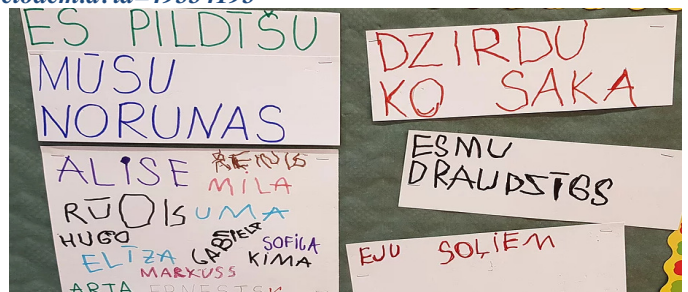 ES PILDĪŠU
MŪSU
NORUNAS
ALISE RENĪS
MILA
RŪDIS UMA
HUGO GABRIELA SOFIJA
ELĪZA KIMA
MARKUSS
ARTA ERNESTS
DZIRDU
KO SAKA
ESMU
DRAUDZĪGS
EJU SOĻIEM